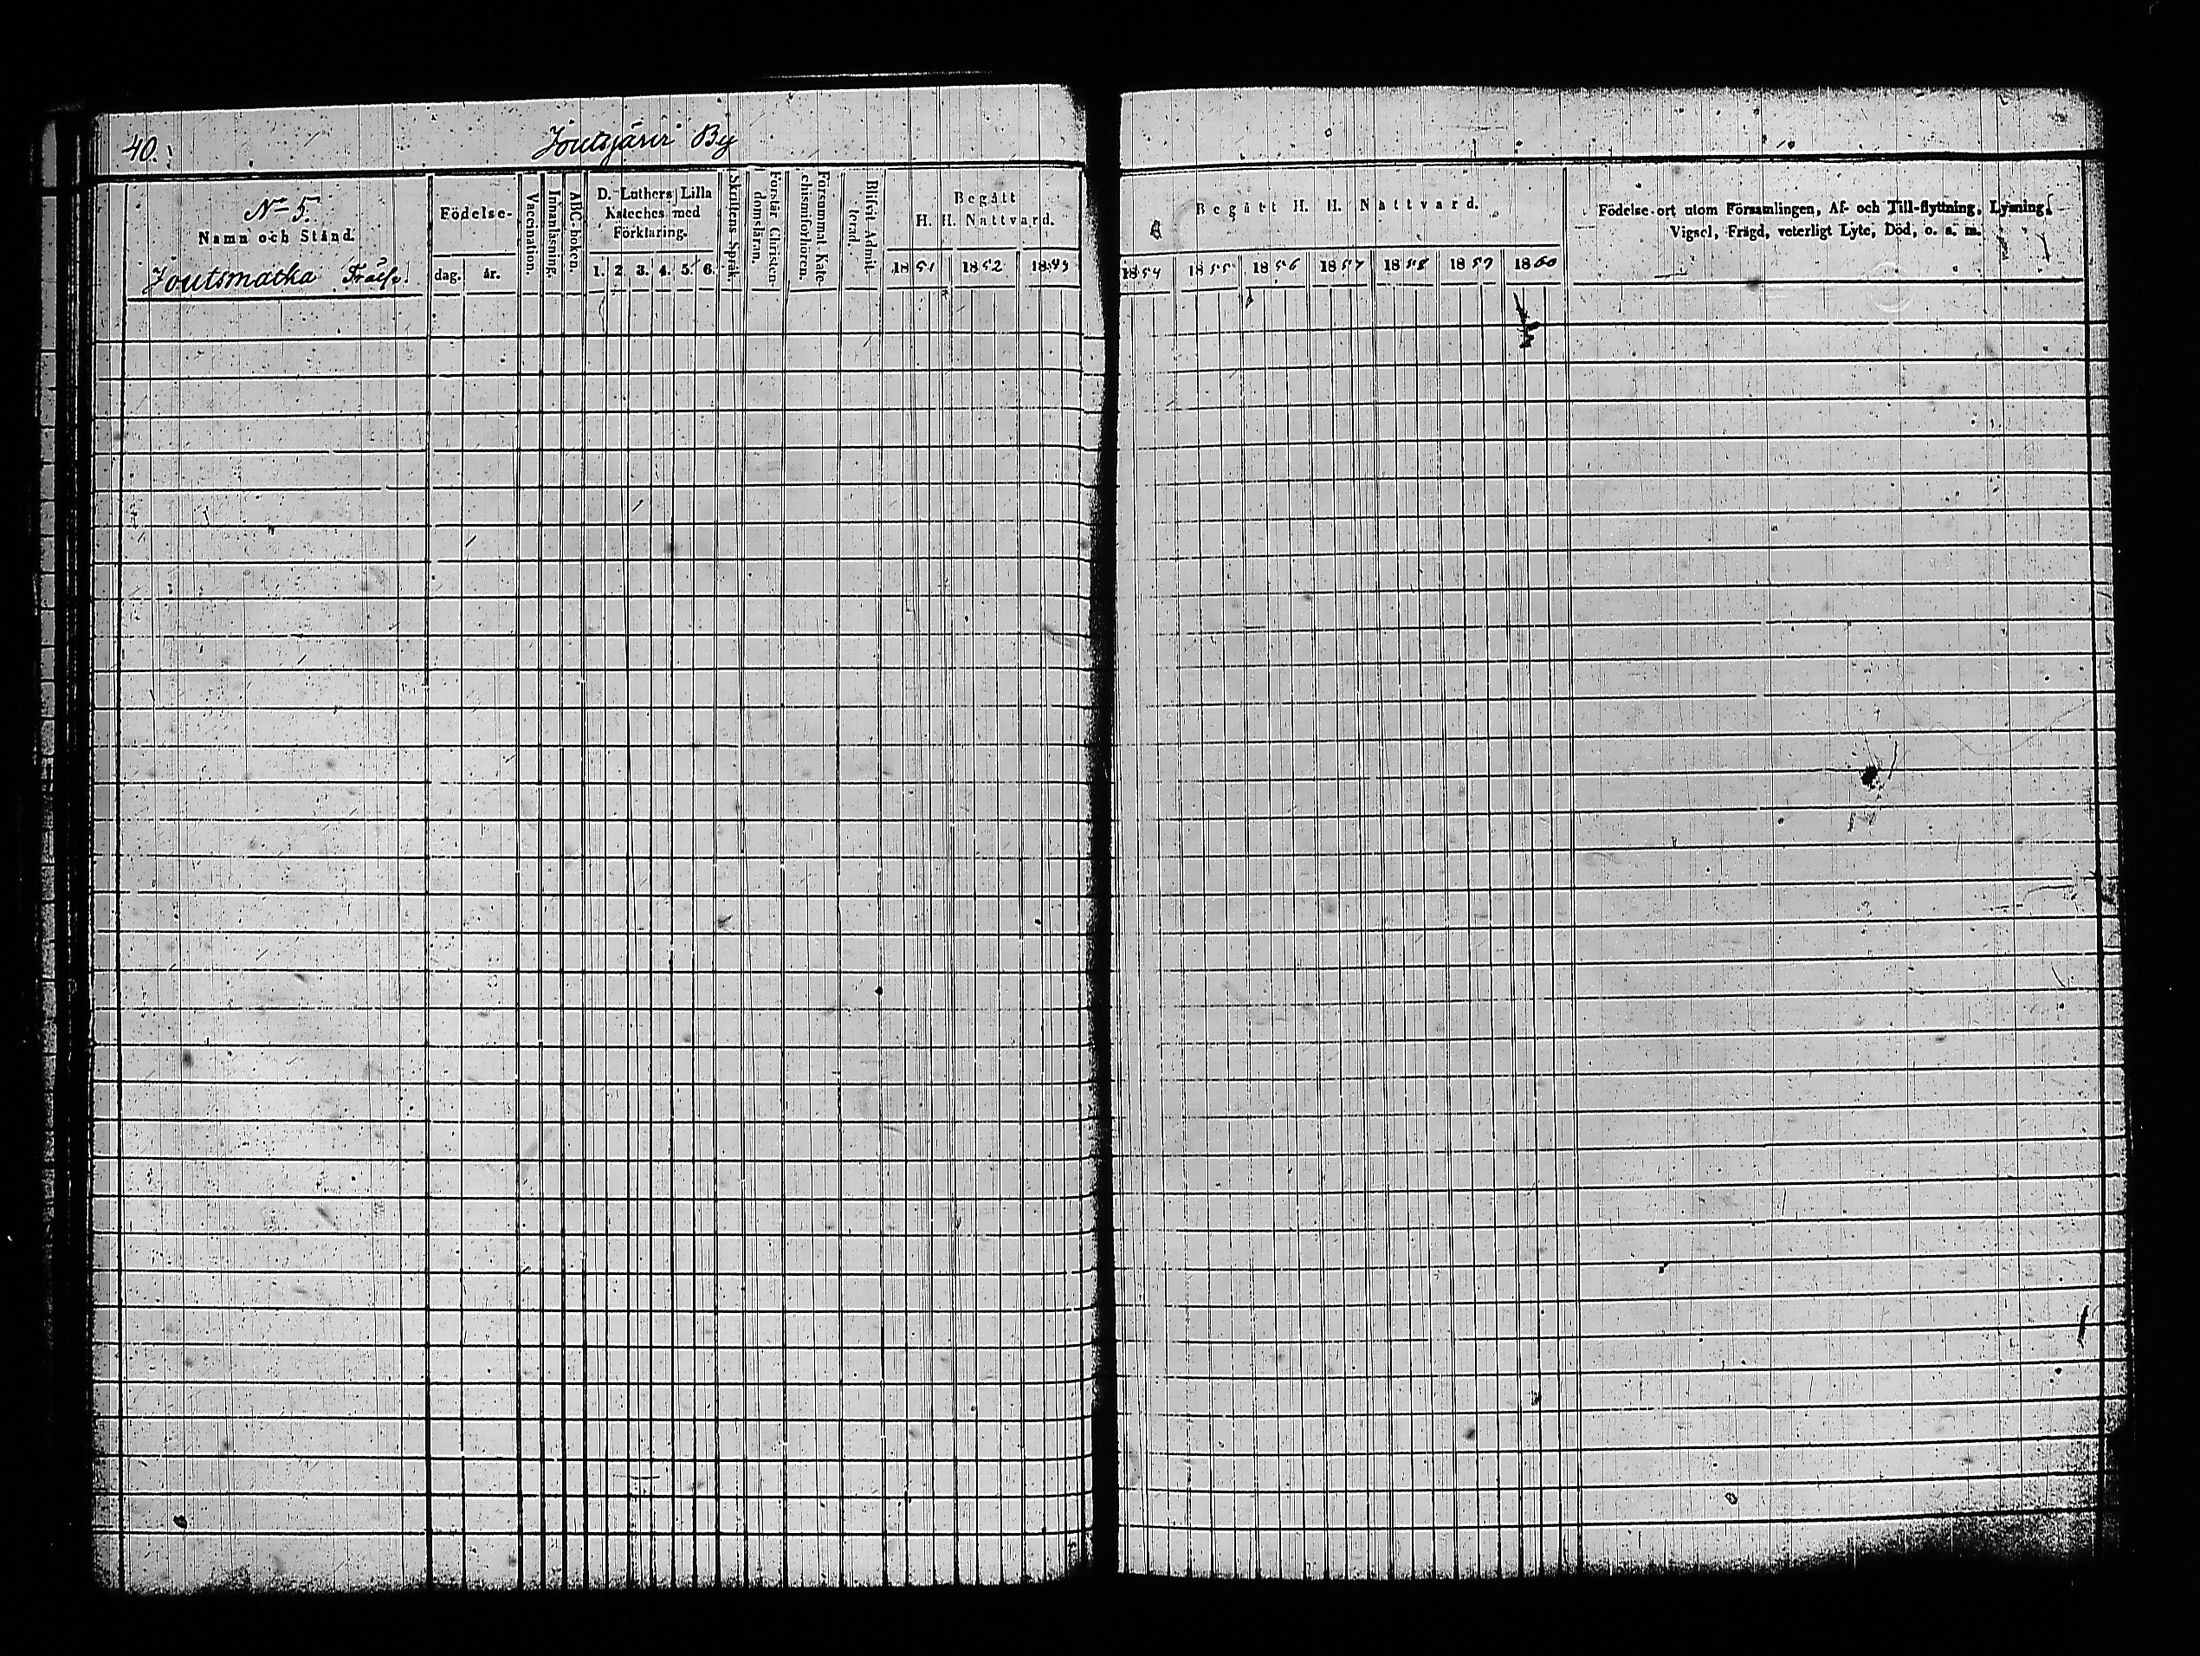 40.
Joutsjärvi By
No 5.
Namn och Stånd.
Joutsmatka Frälse.
Födelse-
dag. år.
Vaccination.
Innanläsning.
ABC-boken.
D. Luthers Lilla
Kateches med
Förklaring.
1. 2. 3. 4. 5. 6.
Skriftens Språk.
Förstår Christen-
domsläran.
Försummat Kate-
chismiförhören.
Blifvit Admit-
terad.
Begått
H. H. Nattvard.
1851 1852 1853
Begått H. H. Nattvard.
1854 1855 1856 1857 1858 1859 1860
Födelse-ort utom Församlingen, Af- och Till-flyttning, Lysning,
Vigsel, Frägd, veterligt Lyte, Död, o. s. m.